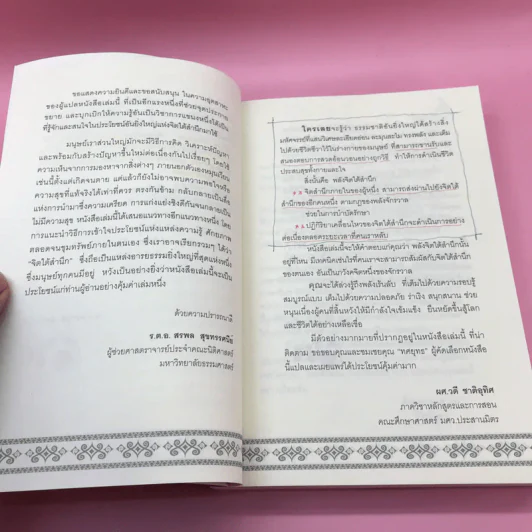 ขอแสดงความยินดีและขอสนับสนุน ในความอุตสาหะ
ของผู้แปลหนังสือเล่มนี้ ที่เป็นอีกแรงหนึ่งที่ช่วยจุดประกาย
ขยาย และบุกเบิกให้ความรู้อันเป็นวิชาการแขนงหนึ่งได้เป็น
ที่รู้จักและสนใจในประโยชน์อันยิ่งใหญ่แห่งจิตใต้สำนึกมาใช้
มนุษย์เราส่วนใหญ่มักจะมีวิธีการคิด วิเคราะห์ปัญหา
และพร้อมกับสร้างปัญหาขึ้นใหม่ต่อเนื่องกันไปเรื่อยๆ โดยใช้
ความเห็นจากการมองหาจากสิ่งต่างๆ ภายนอกตัวของมนุษย์เอง
เช่นนี้ตั้งแต่เกิดจนตาย แต่แล้วก็ยังไม่อาจพบความพอใจหรือ
ความสุขที่แท้จริงได้เท่าที่ควร ตรงกันข้าม กลับกลายเป็นต้น
แห่งการนำมาซึ่งความเครียด การแก่งแย่งชิงดีกันจนกลายเป็น
ไม่มีความสุข หนังสือเล่มนี้ได้เสนอแนวทางอีกแนวทางหนึ่ง โดย
การแนะนำวิธีการเข้าใจประโยชน์แห่งแหล่งความรู้ ศักยภาพ
ตลอดจนขุมทรัพย์ภายในตนเอง ซึ่งเราอาจเรียกรวมๆ ได้ว่า
"จิตใต้สำนึก" ซึ่งถือเป็นแหล่งอารยธรรมยิ่งใหญ่ที่สุดแห่งหนึ่ง
ซึ่งมนุษย์ทุกคนมีอยู่ หวังเป็นอย่างยิ่งว่าหนังสือเล่มนี้จะเป็น
ประโยชน์แก่ท่านผู้อ่านอย่างคุ้มค่าเล่มหนึ่ง
ด้วยความปรารถนาดี
ร.ต.อ. สรพล สุขทรรศนีย์
ผู้ช่วยศาสตราจารย์ประจำคณะนิติศาสตร์
มหาวิทยาลัยธรรมศาสตร์
ใครเลยจะรู้ว่า ธรรมชาติอันยิ่งใหญ่ได้สร้างสิ่ง
มหัศจรรย์ที่แสนวิเศษละเอียดอ่อน ทะมุกละไม ทรงพลัง และเติม
ไปด้วยชีวิตชีวาไว้ในร่างกายของมนุษย์ ที่สามารถขานรับและ
สนองตอบการดวลอ้อนวอนอย่างถูกวิธี ทำให้การดำเนินชีวิต
ประสบสุขทั้งกายและใจ
สิ่งนั้นคือ พลังจิตใต้สำนึก
จิตสำนึกภายในของผู้หนึ่ง สามารถส่งผ่านไปยังจิตใต้
สำนึกของอีกคนหนึ่ง ตามกฎของพลังจักรวาล
ช่วยในการบำบัดรักษา
ปฏิกิริยาเคลื่อนไหวของจิตใต้สำนึกจะดำเนินการอย่าง
ต่อเนื่องตลอดระยะเวลาที่คนเราหลับ
หนังสือเล่มนี้จะให้คำตอบแก่คุณว่า พลังจิตใต้สำนึกนั้น
อยู่ที่ไหน มีเทคนิคเช่นไรที่คนเราจะสามารถสัมผัสกับจิตใต้สำนึก
ของตนเอง อันเป็นภวังคจิตหนึ่งของจักรวาล
คุณจะได้ล่วงรู้ถึงพลังเร้นลับ ที่เต็มไปด้วยความรอบรู้
สมบูรณ์แบบ เต็มไปด้วยความปลอดภัย ร่าเริง สนุกสนาน ช่วย
หนุนเนื่องผู้คนที่สิ้นหวังให้มีกำลังใจเข้มแข็ง ยืนหยัดขึ้นสู้โลก
และชีวิตได้อย่างเหลือเชื่อ
มีตัวอย่างมากมายที่ปรากฏอยู่ในหนังสือเล่มนี้ ที่น่า
ติดตาม ขอขอบคุณและชมเชยคุณ "ทศยุทธ" ผู้คัดเลือกหนังสือ
นี้แปลและเผยแพร่ได้ประโยชน์คุ้มค่ามาก
ผศ.วดี ชาติอุทิศ
ภาควิชาหลักสูตรและการสอน
คณะศึกษาศาสตร์ มศว.ประสานมิตร